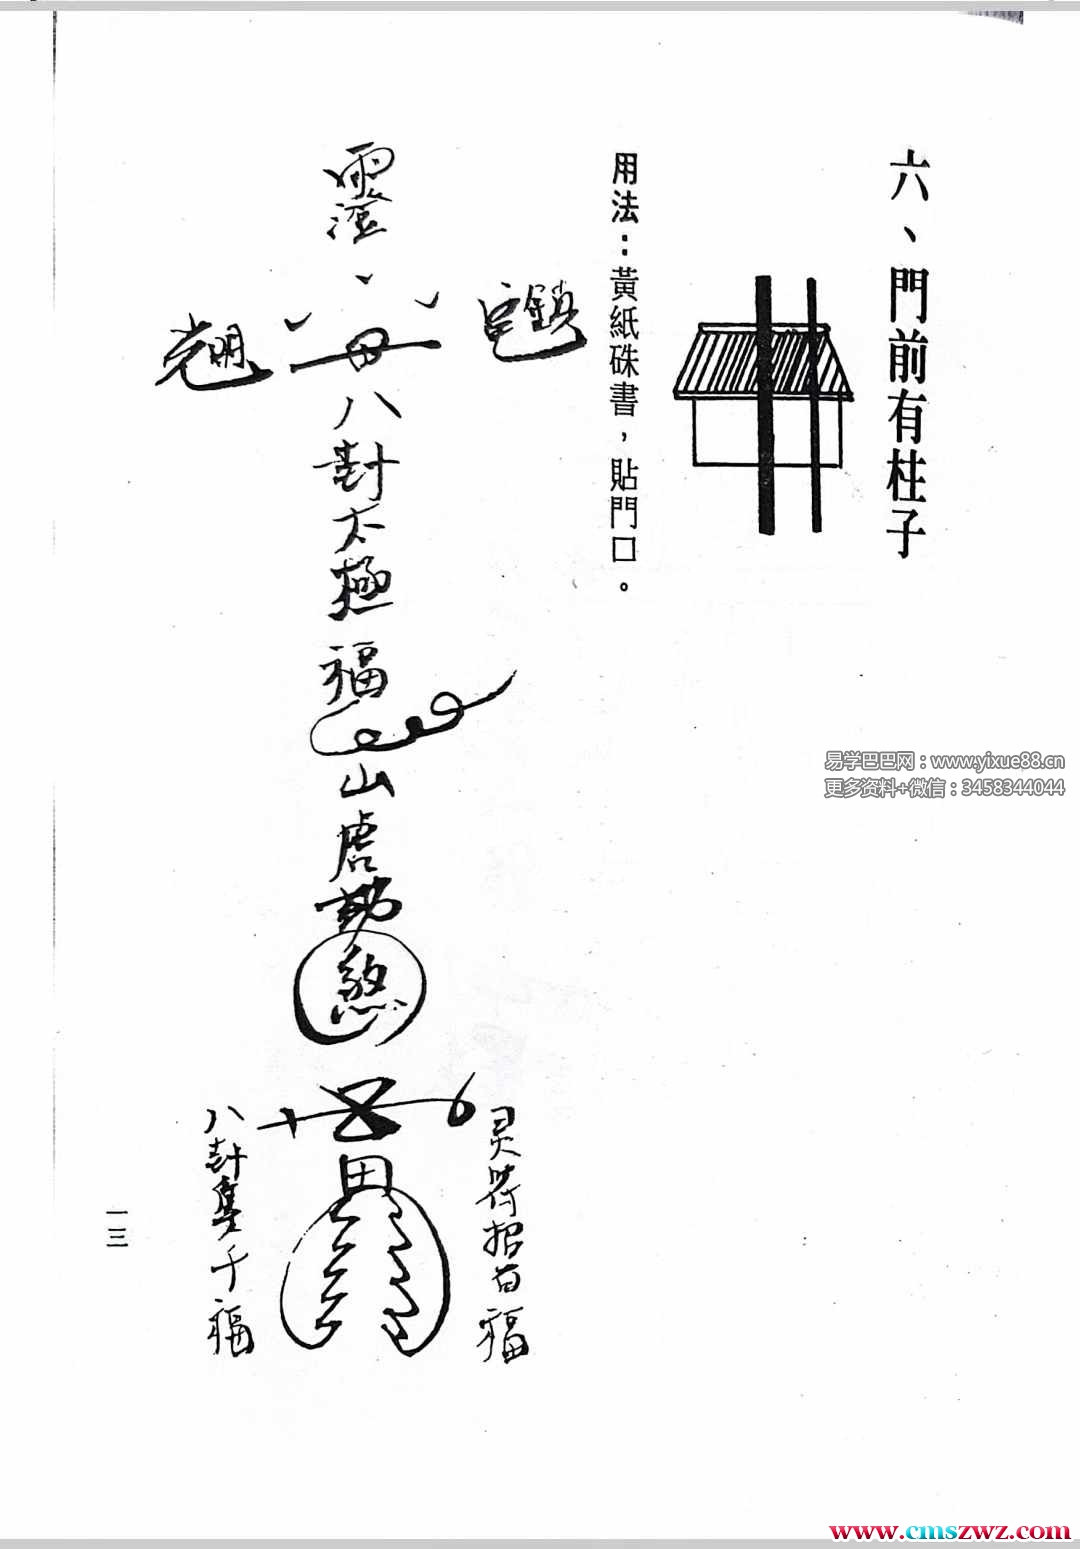 六、門前有柱子
用法：黃紙硃書，貼門口。
鎮宅
靈
八卦太極福
山
煞
田
光明
灵符招百福
八卦集千福
一三
易学巴巴网：www.yixue88.cn
更多资料+微信：3458344044
www.cmszwz.com